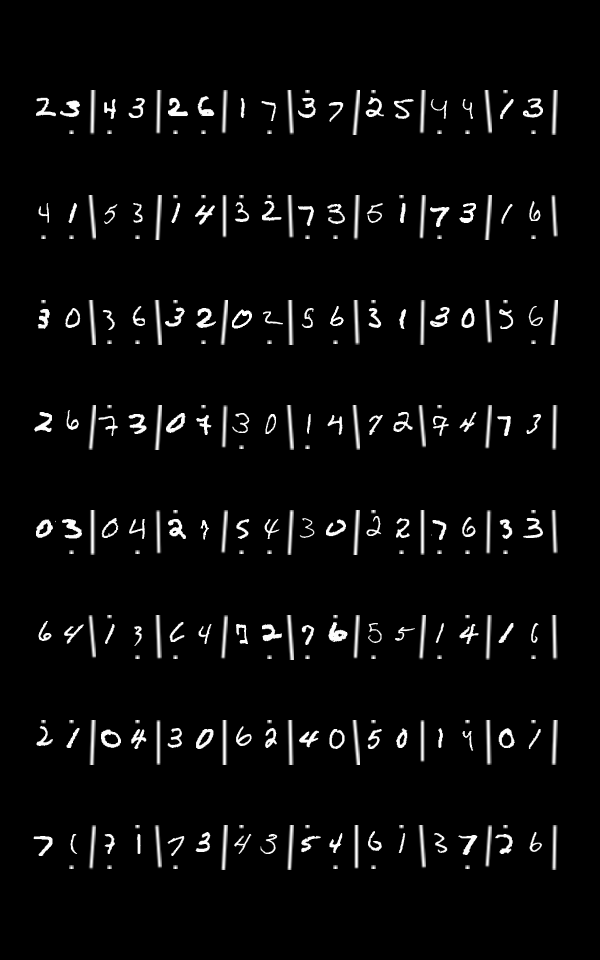 2 3̣ | 4̣ 3 | 2̣ 6̣ | 1 7̣ | 3̇ 7 | 2̇ 5 | 4̣ 4̣ | 1̇ 3̣ |
4̣ 1̣ | 5 3̣ | 1̇ 4̇ | 3̇ 2̇ | 7̣ 3̣ | 5 1̇ | 7̣ 3 | 1 6̣ |
3̇ 0 | 3̣ 6̣ | 3̇ 2̣ | 0 2̣ | 5 6̣ | 3̇ 1 | 3 0 | 5̇ 6̣ |
2 6 | 7̇ 3 | 0 7̇ | 3̣ 0 | 1̣ 4 | 7 2 | 7̇ 4 | 7 3 |
0 3̣ | 0 4 | 2̇ 7 | 5̣ 4̣ | 3 0 | 2̇ 2̣ | 7̣ 6̣ | 3̣ 3̇ |
6 4 | 1̇ 3̣ | 6̣ 4 | 7 2̣ | 7̇ 6̇ | 5̣ 5 | 1̣ 4̇ | 1 6̣ |
2̇ 1̇ | 0 4̇ | 3 0 | 6 2̇ | 4 0 | 5̇ 0 | 1 4̇ | 0 1̇ |
7 6̣ | 7̣ 1̇ | 7̣ 3 | 4̇ 3 | 5̇ 4̣ | 6̣ 1̇ | 3 7̣ | 2̇ 6 |